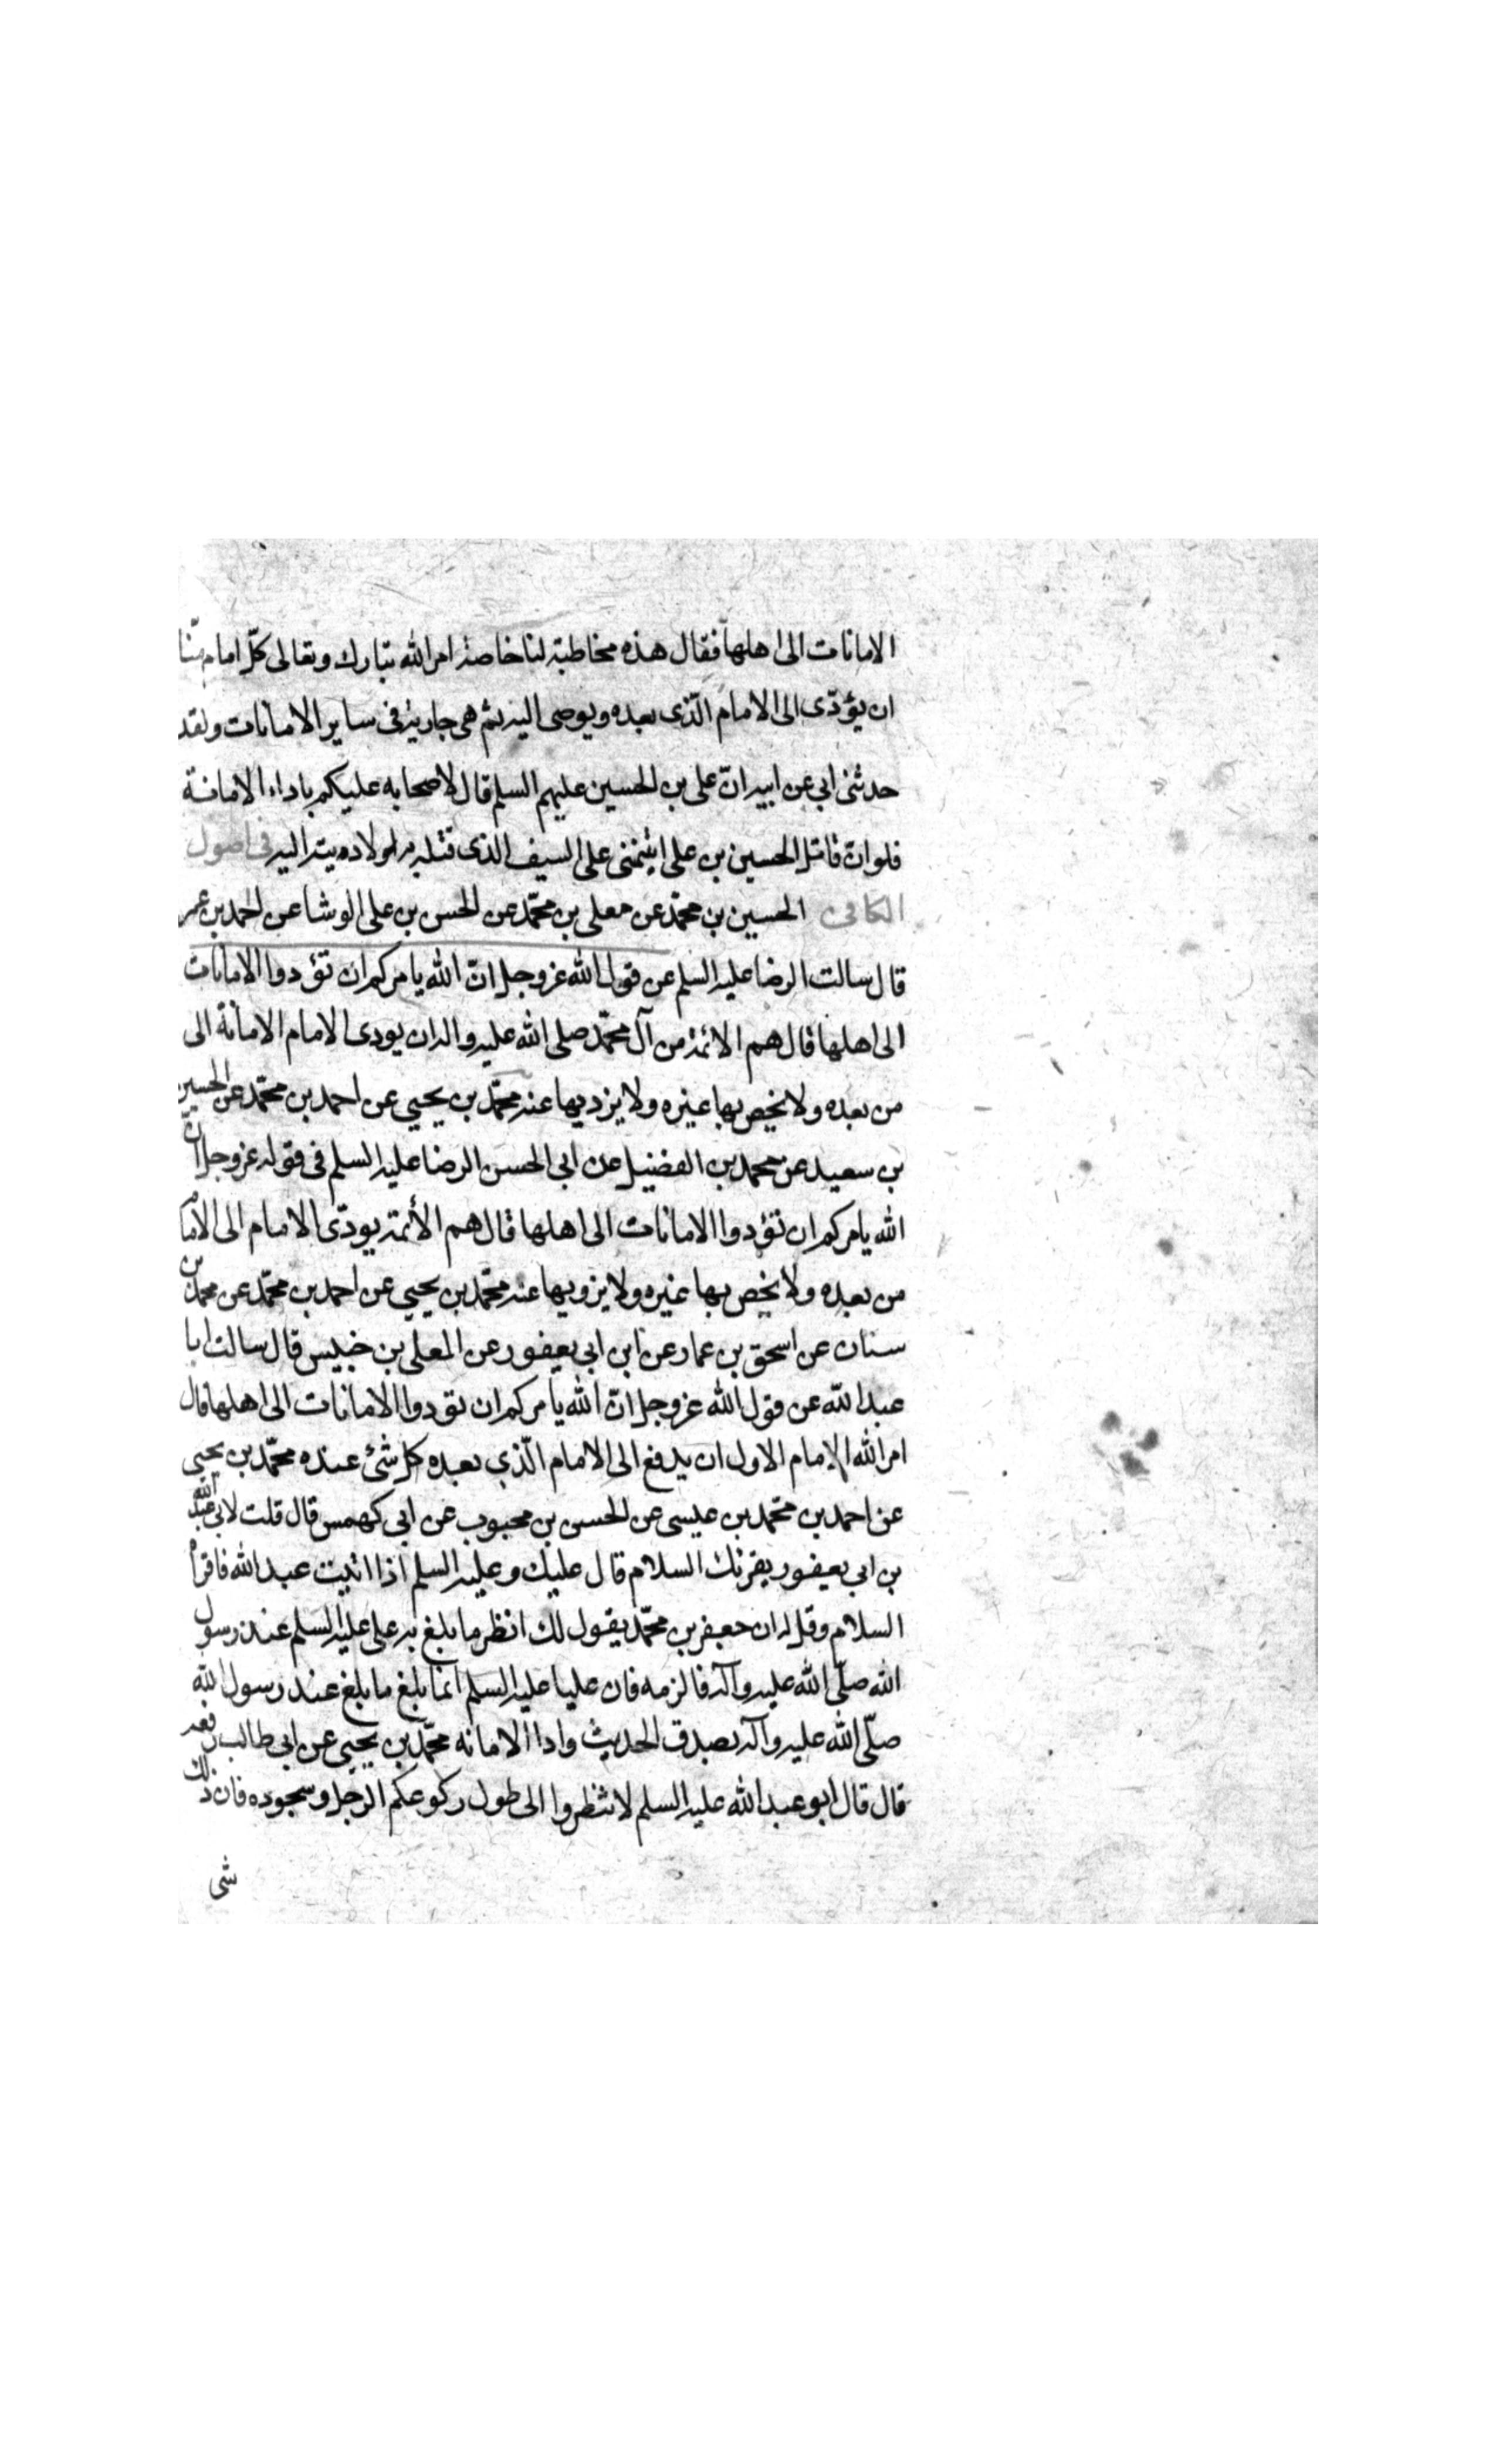 الامانات الى اهلها فقال هذه مخاطبة لنا خاصة امر الله تبارك وتعالى كلّ امام منّا
ان يؤدّى الى الامام الّذى بعده ويوصى اليه ثم هى جارية فى ساير الامانات ولقد
حدثنى ابى عن ابيه انّ على بن الحسين عليهم السلم قال لاصحابه عليكم باداء الامانة
فلو انّ قاتل الحسين بن على ائتمننى على السيف الذى قتله به لاديته اليه فى اصول
الكافى الحسين بن محمّد عن معلى بن محمّد عن الحسن بن على الوشا عن احمد بن عمر
قال سالت الرضا عليه السلم عن قول الله عزوجل انّ الله يامركم ان تؤدوا الامانات
الى اهلها قال هم الائمة من آل محمّد صلى الله عليه واله ان يودى الامام الامانة الى
من بعده ولا يخص بها غيره ولا يزديها عنه محمّد بن يحيى عن احمد بن محمّد عن الحسين
بن سعيد عن محمد بن الفضيل عن ابى الحسن الرضا عليه السلم فى قوله عزوجل انّ
الله يامركم ان تؤدوا الامانات الى اهلها قال هم الأئمة يودّى الامام الى الامام
من بعده ولا يخص بها غيره ولا يزويها عنه محمّد بن يحيى عن احمد بن محمّد عن محمد بن
سنان عن اسحق بن عمار عن ابن ابى يعفور عن المعلى بن خنيس قال سالت ابا
عبد الله عن قول الله عزوجل انّ الله يامركم ان تودوا الامانات الى اهلها قال
امر الله الامام الاول ان يدفع الى الامام الّذي بعده كل شئ عنده محمّد بن يحيى
عن احمد بن محمّد بن عيسى عن الحسن بن محبوب عن ابى كهمس قال قلت لابى عبد الله
بن ابى يعفور يقرئك السلام قال عليك وعليه السلم اذا اتيت عبد الله فاقرأ
السلام وقل له ان جعفر بن محمّد يقول لك انظر ما بلغ به على عليه السلم عند رسول
الله صلّى الله عليه وآله فالزمه فان عليا عليه السلم انما بلغ ما بلغ عند رسول الله
صلّى الله عليه وآله بصدق الحديث وادا الامانه محمّد بن يحيى عن ابى طالب رفعه
قال قال ابو عبد الله عليه السلم لا تنظروا الى طول ركوعكم الرجل وسجوده فان ذلك
شى